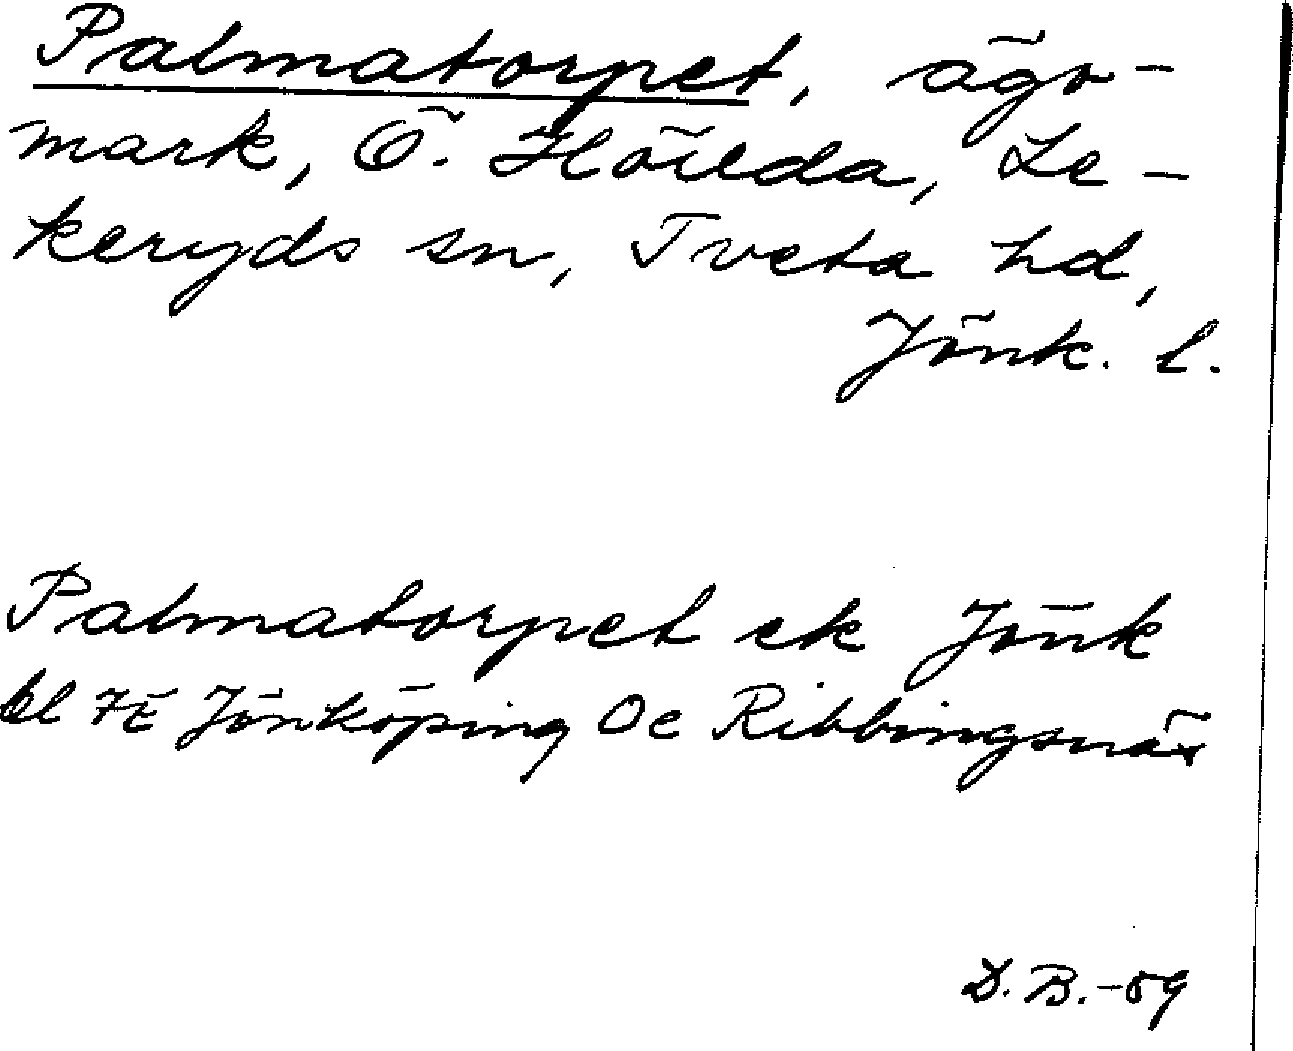 Palmatorpet, ägo-
mark, Ö. Höreda, Le-
keryds sn, Tveta hd,
Jönk. l.
Palmatorpet ek Jönk
bl 7E Jönköping Oe Ribbingsnäs
D.B.-59